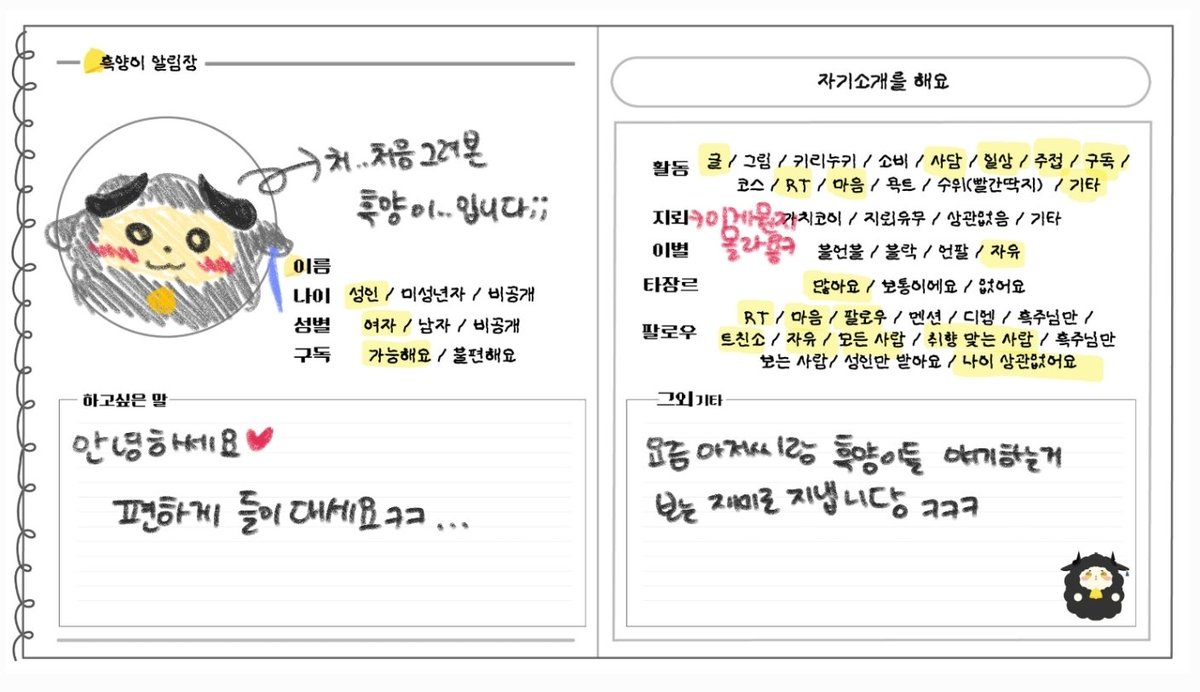 흑양이 알림장
처..처음그려본
흑양이..입니다;;
이름
나이 성인 / 미성년자 / 비공개
성별 여자 / 남자 / 비공개
구독 가능해요 / 불편해요
하고싶은 말
안녕하세요♥
편하게 들이대세요ㅋㅋ...
자기소개를 해요
활동 글 / 그림 / 키리누키 / 소비 / 사담 / 일상 / 주접 / 구독 /
코스 / RT / 마음 / 욕트 / 수위(빨간딱지) / 기타
지뢰 가치코이 / 지뢰유무 / 상관없음 / 기타
ㅋ이게뭔지
몰라용ㅋ
이별 블언블 / 블락 / 언팔 / 자유
타장르 많아요 / 보통이에요 / 없어요
팔로우 RT / 마음 / 팔로우 / 멘션 / 디엠 / 흑주님만 /
트친소 / 자유 / 모든 사람 / 취향 맞는 사람 / 흑주님만
보는 사람/ 성인만 받아요 / 나이 상관없어요
그외 기타
요즘 아저씨랑 흑양이들 얘기하는거
보는 재미로 지냅니당 ㅋㅋㅋ